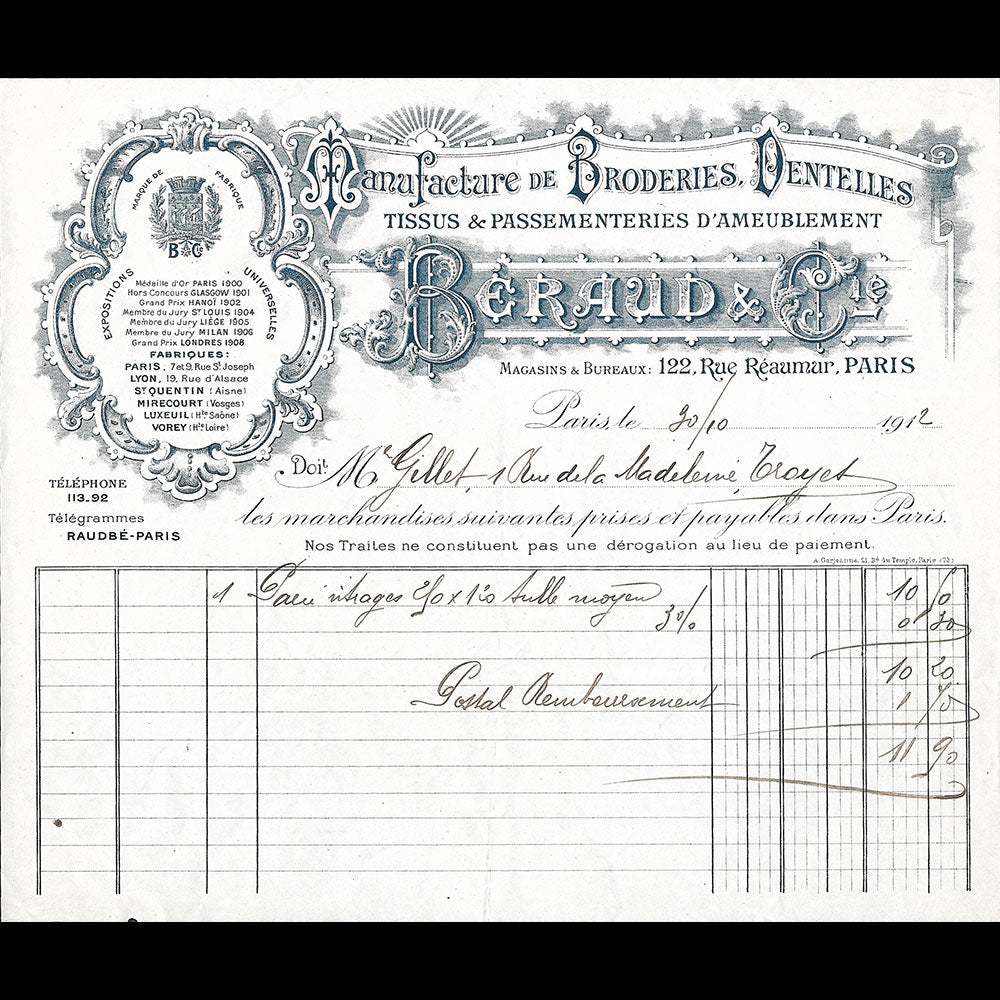 Manufacture de Broderies, Dentelles
TISSUS & PASSEMENTERIES D'AMEUBLEMENT
BÉRAUD & Cie
MAGASINS & BUREAUX: 122, Rue Réaumur, PARIS
MARQUE DE FABRIQUE
B & Co
EXPOSITIONS UNIVERSELLES
Médaille d'Or PARIS 1900
Hors Concours GLASGOW 1901
Grand Prix HANOÏ 1902
Membre du Jury ST LOUIS 1904
Membre du Jury LIÈGE 1905
Membre du Jury MILAN 1906
Grand Prix LONDRES 1908
FABRIQUES:
PARIS, 7 et 9, Rue St Joseph
LYON, 19, Rue d'Alsace
ST QUENTIN (Aisne)
MIRECOURT (Vosges)
LUXEUIL (Hte Saône)
VOREY (Hte Loire)
TÉLÉPHONE
113.92
Télégrammes
RAUDBÉ-PARIS
Paris, le 30/10 1912
Doit Mr Gillet, 1 Rue de la Madeleine Troyes
les marchandises suivantes prises et payables dans Paris.
Nos Traites ne constituent pas une dérogation au lieu de paiement.
A. Garjeanne, 21, Bd du Temple, Paris (73)
1 Paire vitrages 2/0 x 120 tulle moyen 10 50
3% 0 30
10 20
Postal Remboursement 1 70
11 90